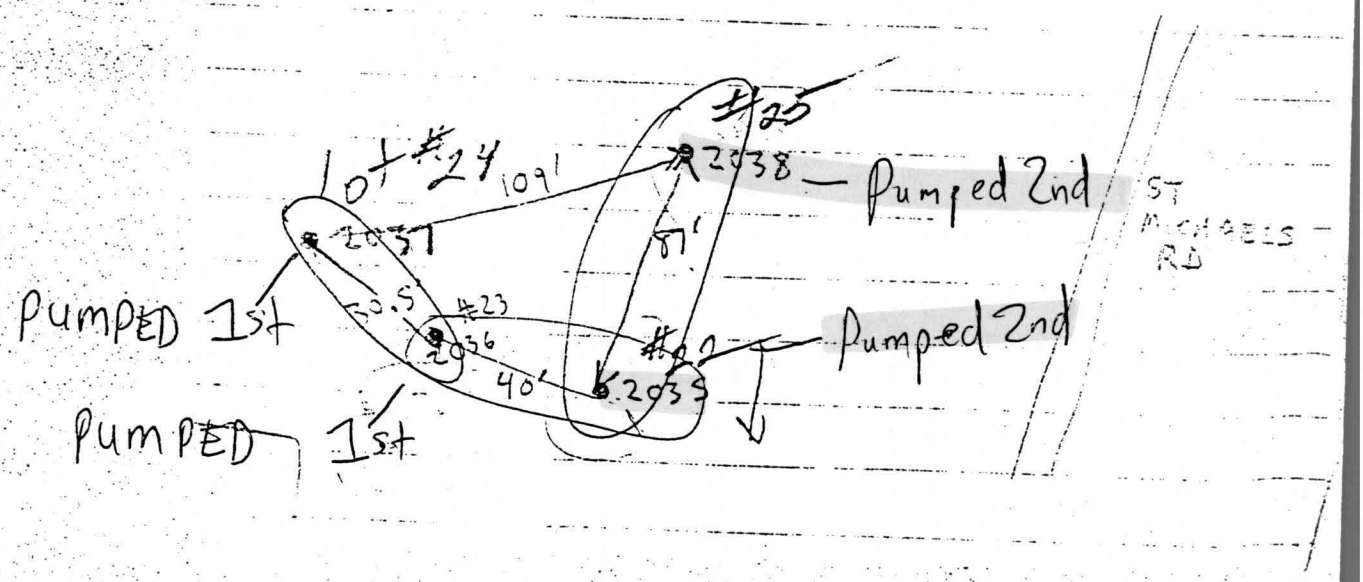 #25
Lot #24
109'
2038 — Pumped 2nd
ST
MICHAELS
RD
2037
87'
PUMPED 1st
50.5
#23
2036
Pumped 2nd
40'
2035
PUMPED 1st